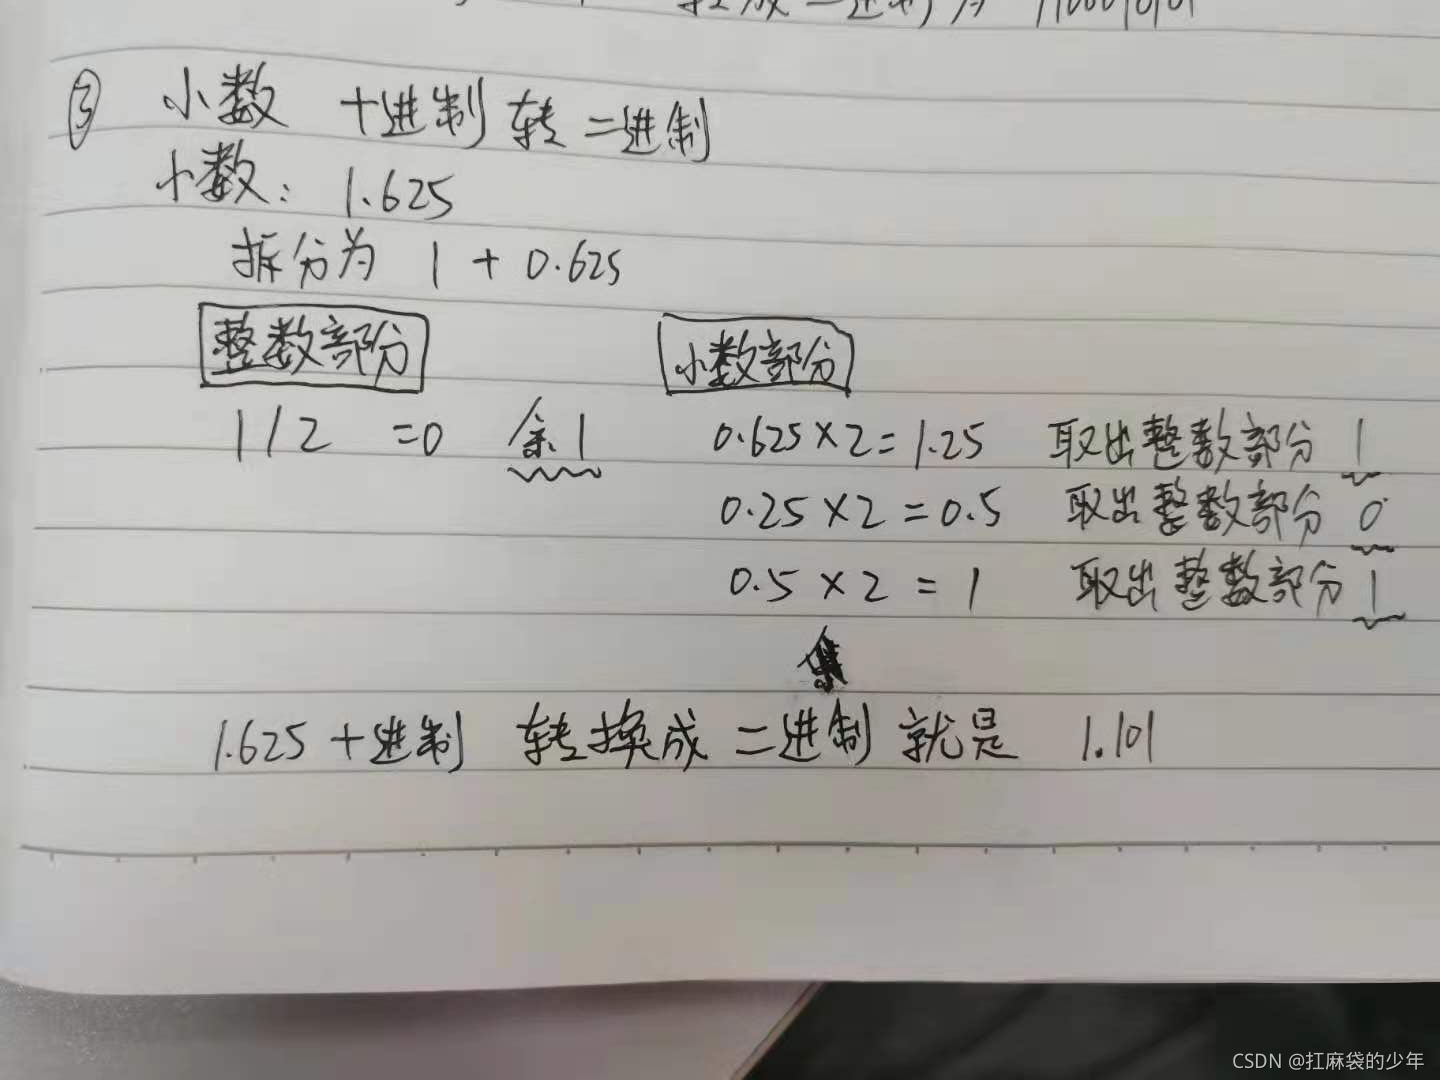 转成二进制为 1100010101
③ 小数 十进制 转 二进制
小数: 1.625
拆分为 1 + 0.625
整数部分 小数部分
1/2 =0 余1 0.625×2=1.25 取出整数部分 1
0.25×2=0.5 取出整数部分 0
0.5×2=1 取出整数部分 1
1.625 十进制 转换成 二进制 就是 1.101
CSDN @扛麻袋的少年